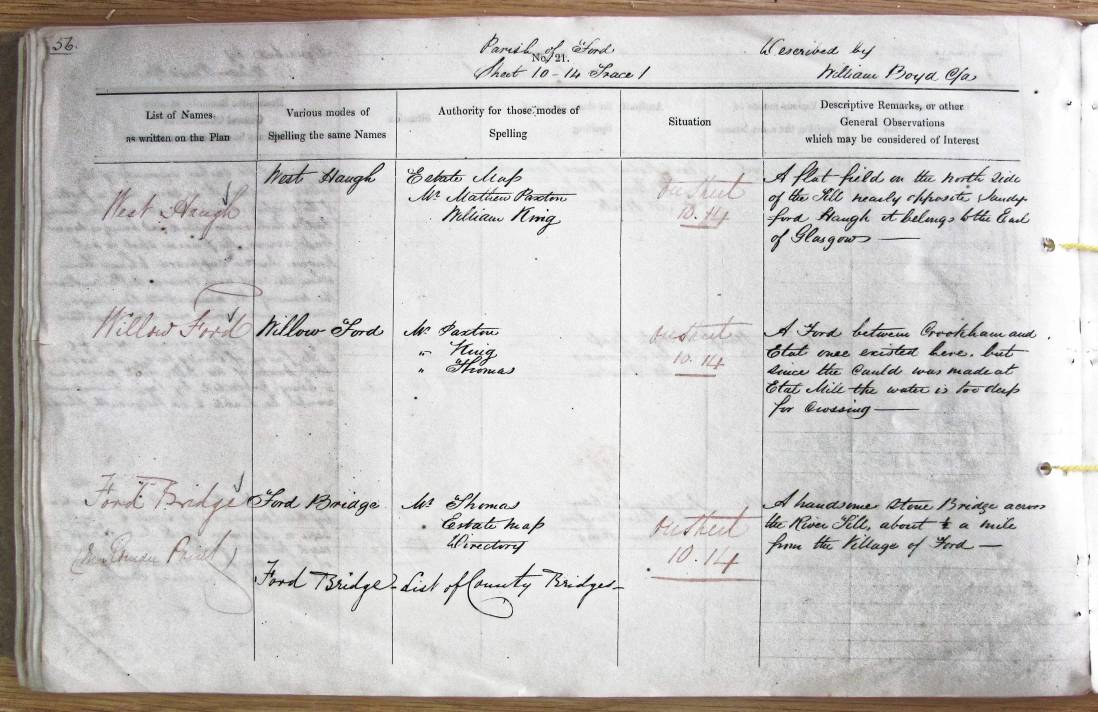 56.
Parish of Ford
No. 21.
Sheet 10-14 Trace 1
Described by
William Boyd C/a
List of Names.
as written on the Plan
Various modes of
Spelling the same Names
Authority for those modes of
Spelling
Situation
Descriptive Remarks, or other
General Observations
which may be considered of Interest
West Haugh
West Haugh
Estate Map
Mr. Mathew Paxton
William King
On Sheet
10.14
A flat field on the north side
of the Till nearly opposite Sandy-
ford Haugh it belongs to the Earl
of Glasgow —
Willow Ford
Willow Ford
Mr. Paxton
" King
" Thomas
On Sheet
10.14
A Ford between Crookham and
Etal once existed here. but
since the Cauld was made at
Etal Mill the water is too deep
for Crossing —
Ford Bridge
Ford Bridge
Mr. Thomas
Estate map
Directory
On Sheet
10.14
A handsome Stone Bridge across
the River Till, about ½ a mile
from the Village of Ford —
Ford Bridge - List of County Bridges -